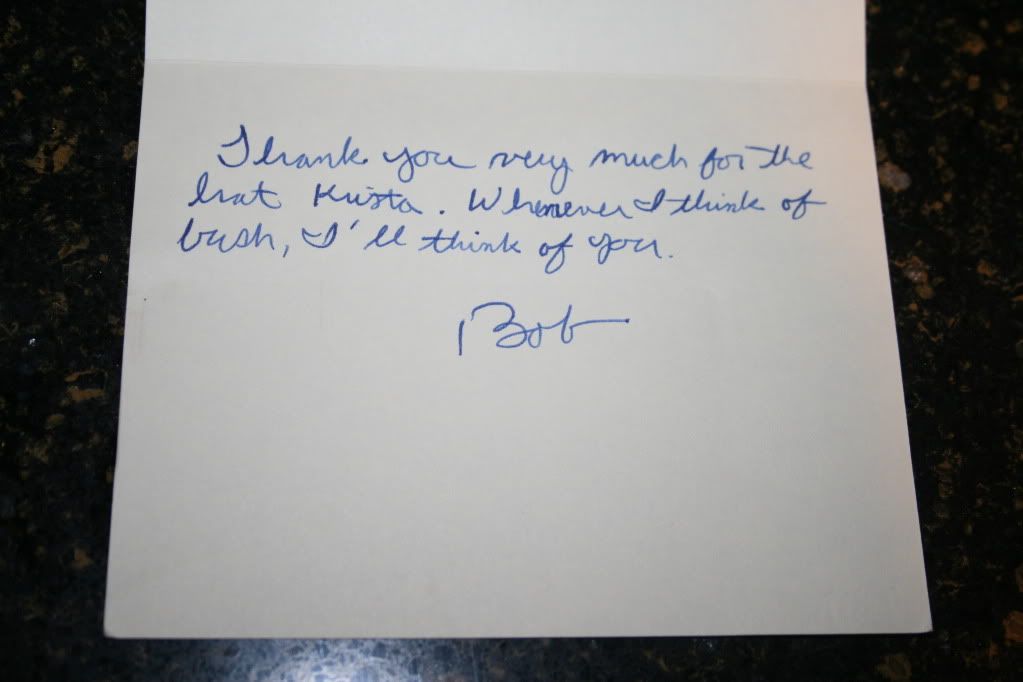 Thank you very much for the
hat Krista. Whenever I think of
bush, I'll think of you.
Bob